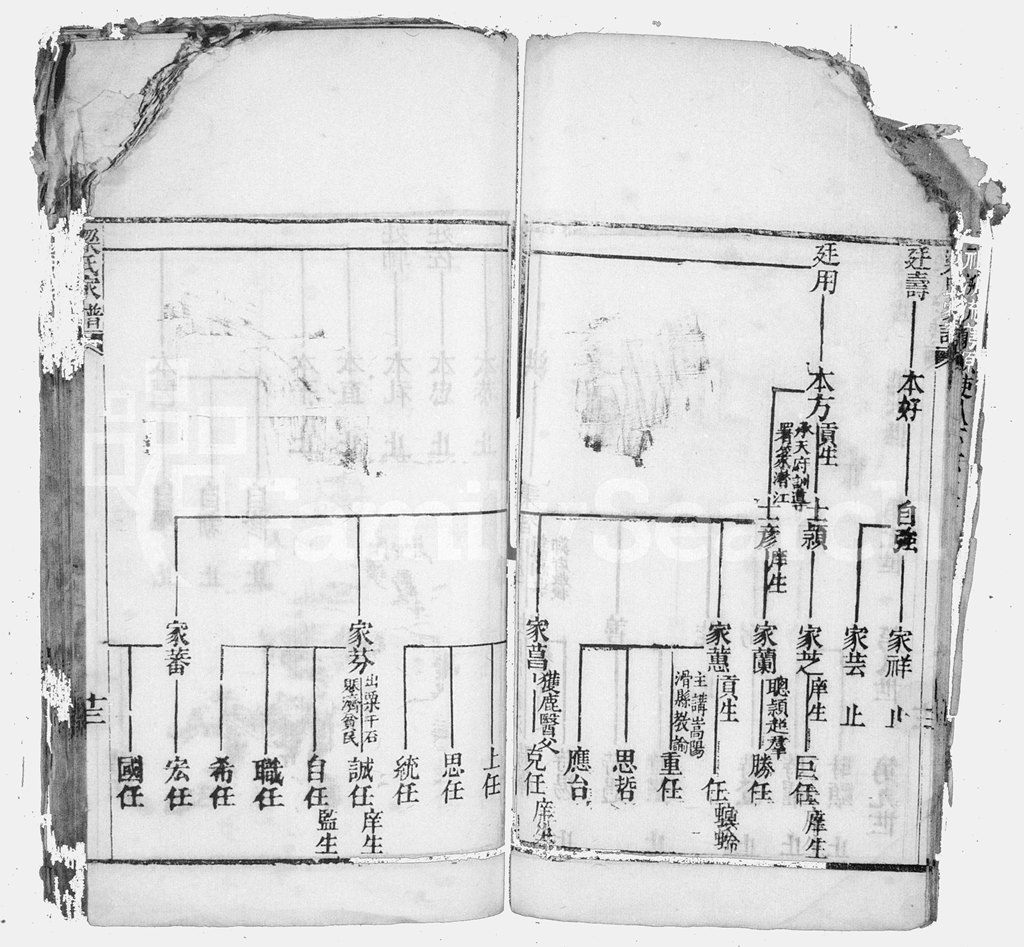 廷壽
本好
自強
家祥 止
家芸 止
廷用
本方 貢生
承天府訓導
士頴
家芝 庠生
巨任 庠生
士彥 庠生
家蘭 聰頴超羣
勝任
家蕙 貢生
主講嵩陽
滑縣教諭
任 螟蛉
重任
思哲
應台
家菖 獲鹿醫父
克任 庠生
上任
思任
統任
家芬
出粟千石
賑濟貧民
誠任 庠生
自任 監生
職任
希任
家蕃
宏任
國任
氏家譜
十三
FamilySearch